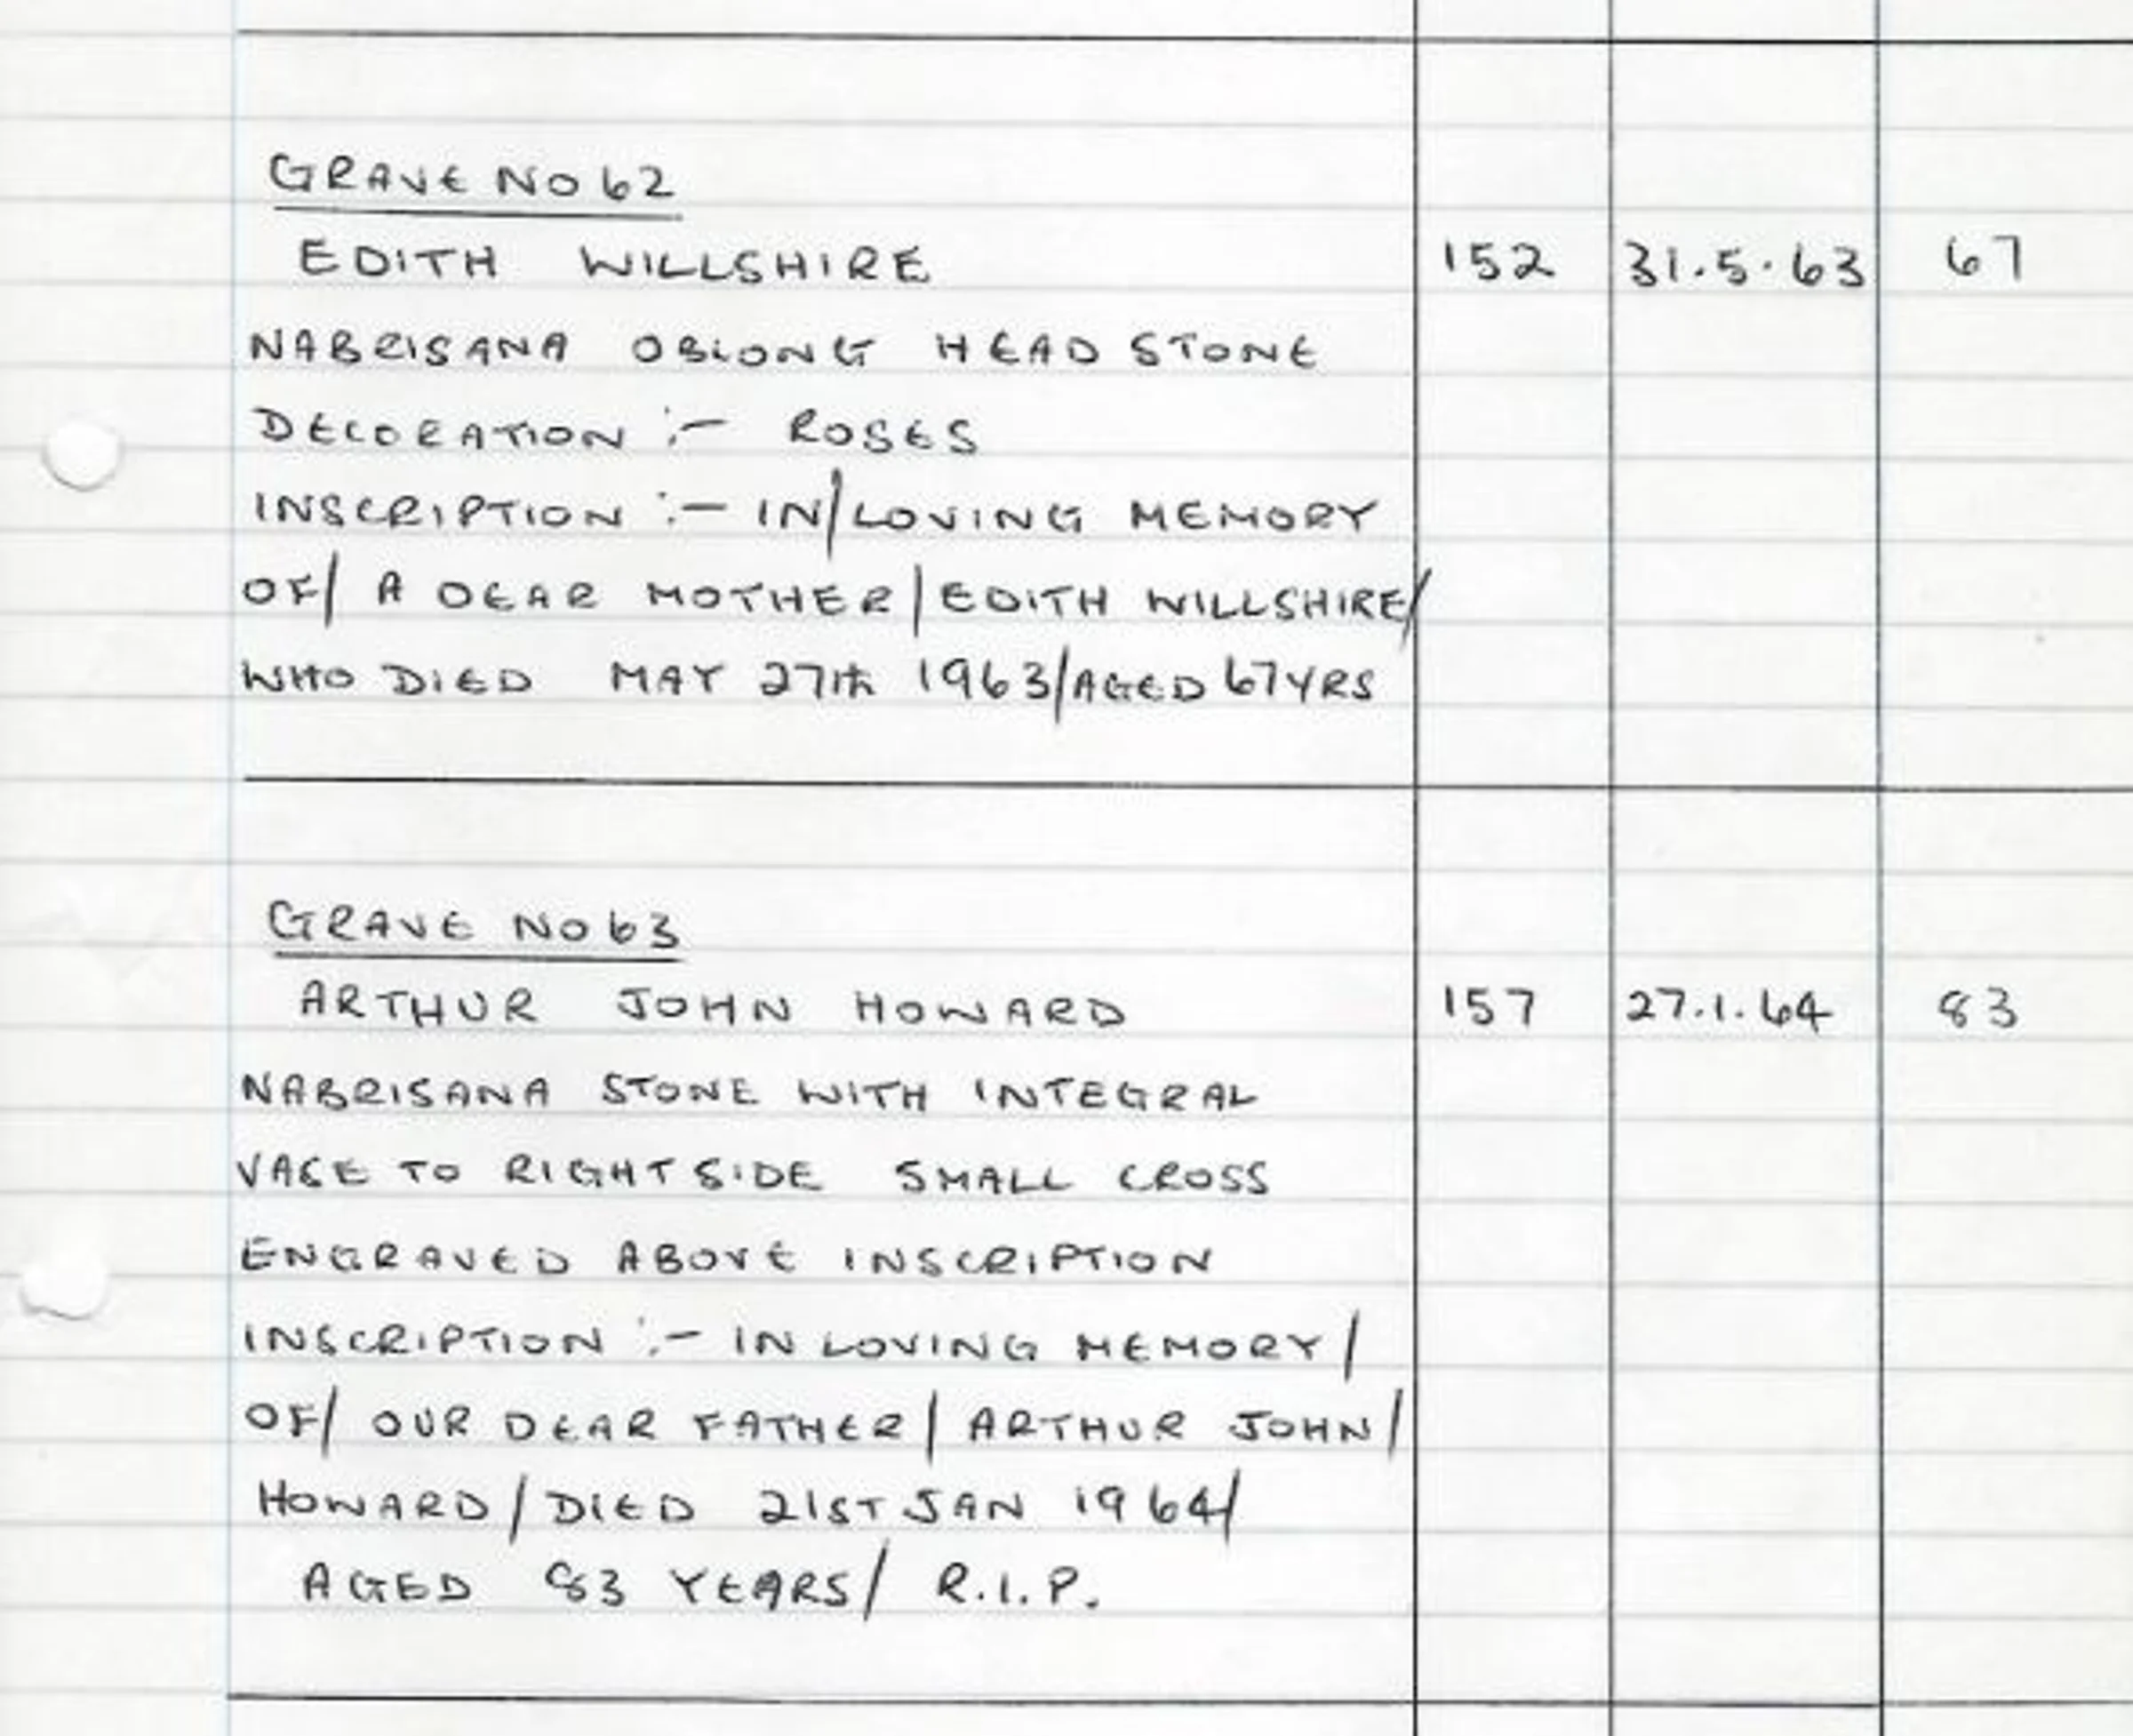 GRAVE NO 62
EDITH WILLSHIRE 152 31.5.63 67
NABRISANA OBLONG HEAD STONE
DECORATION :- ROSES
INSCRIPTION :- IN/LOVING MEMORY
OF/ A DEAR MOTHER/EDITH WILLSHIRE/
WHO DIED MAY 27th 1963/AGED 67YRS
GRAVE NO 63
ARTHUR JOHN HOWARD 157 27.1.64 83
NABRISANA STONE WITH INTEGRAL
VASE TO RIGHT SIDE SMALL CROSS
ENGRAVED ABOVE INSCRIPTION
INSCRIPTION :- IN LOVING MEMORY/
OF/ OUR DEAR FATHER/ ARTHUR JOHN/
HOWARD/DIED 21ST JAN 1964/
AGED 83 YEARS/ R.I.P.